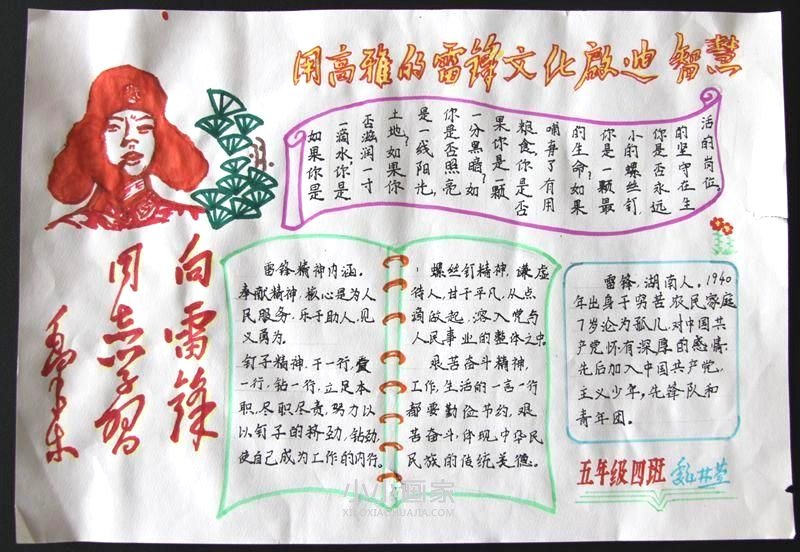 用高雅的雷锋文化启迪智慧
如果你是
一滴水，你是
否滋润一寸
土地？如果你
是一线阳光，
你是否照亮
一分黑暗？如
果你是一颗
粮食，你是否
哺育了有用
的生命？如果
你是一颗最
小的螺丝钉
你是否永远
的坚守在生
活的岗位。
向雷锋
同志学习
毛泽东
雷锋精神内涵。
奉献精神，核心是为人
民服务，乐于助人，见
义勇为。
钉子精神，干一行，爱
一行，钻一行，立足本
职，尽职尽责，努力以
以钉子的挤劲，钻劲
使自己成为工作的内行。
螺丝钉精神，谦虚
待人，甘于平凡，从点
滴做起，溶入党与
人民事业的整体之中。
艰苦奋斗精神，
工作，生活的一言一行
都要勤俭节约，艰
苦奋斗，体现中华民
民族的传统美德。
雷锋，湖南人。1940
年出身于穷苦农民家庭
7岁沦为孤儿，对中国共
产党怀有深厚的感情
先后加入中国共产党，
主义少年，先锋队和
青年团。
五年级四班
小小画家
XIAOXIAOHUAJIA.COM